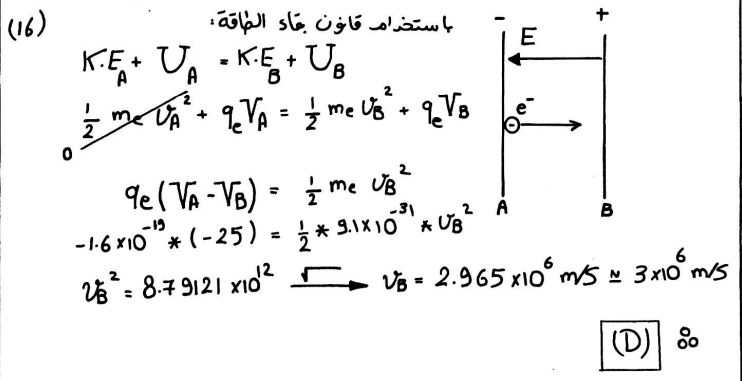 (16)
باستخدام قانون بقاء الطاقة:
K.E_A + U_A = K.E_B + U_B
½ m_e v_A² + q_e V_A = ½ m_e v_B² + q_e V_B
0
q_e (V_A - V_B) = ½ m_e v_B²
-1.6 x10⁻¹⁹ * (-25) = ½ * 9.1x10⁻³¹ * v_B²
v_B² = 8.79121 x10¹² √ → v_B = 2.965 x10⁶ m/s ≅ 3x10⁶ m/s
(D)
- +
E
e⁻
A B